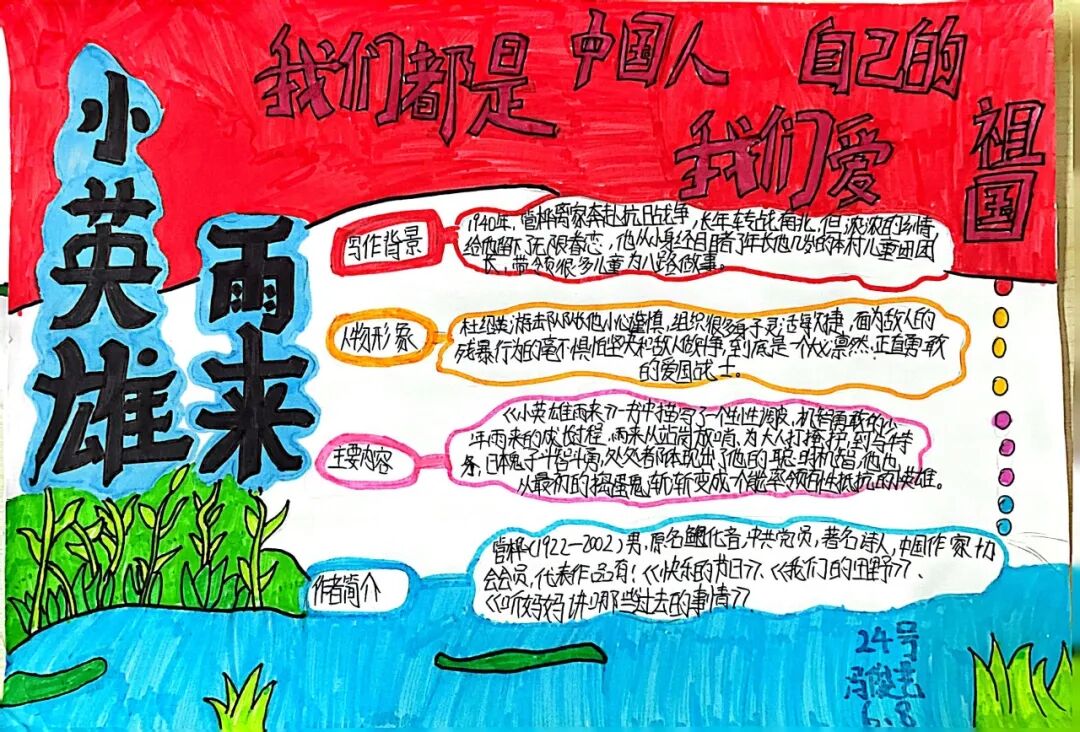 我们都是中国人 自己的
我们爱祖国
小英雄
雨来
写作背景
1940年，管桦离家奔赴抗日战争，长年转战南北，但浓浓的乡情
给他留下无限眷恋，他从小身经目睹了年长他几岁的本村儿童团团
长，带领很多儿童为八路做事。
人物形象
杜绍英游击队队长他小心谨慎，组织很多身子灵活敏捷，面为敌人的
残暴行为的毫不惧怕坚决和敌人做斗争，到底是一个大义凛然，正直勇敢
的爱国战士。
主要内容
《小英雄雨来》一书中描写了一个生活，机智勇敢的少
年雨来的成长过程，雨来从站岗放哨，为大人打掩护，到与特
务，日本鬼子斗智斗勇，处处都体现出了他的聪明机智，他也
从最初的捣蛋鬼，渐渐变成了能率领百姓抵抗的小英雄。
作者简介
管桦(1922—2002)男，原名鲍化普，中共党员，著名诗人，中国作家协
会会员，代表作品有！《快乐的节日》、《我们的田野》、
《听妈妈讲那当过去的事情》
24号
6.8